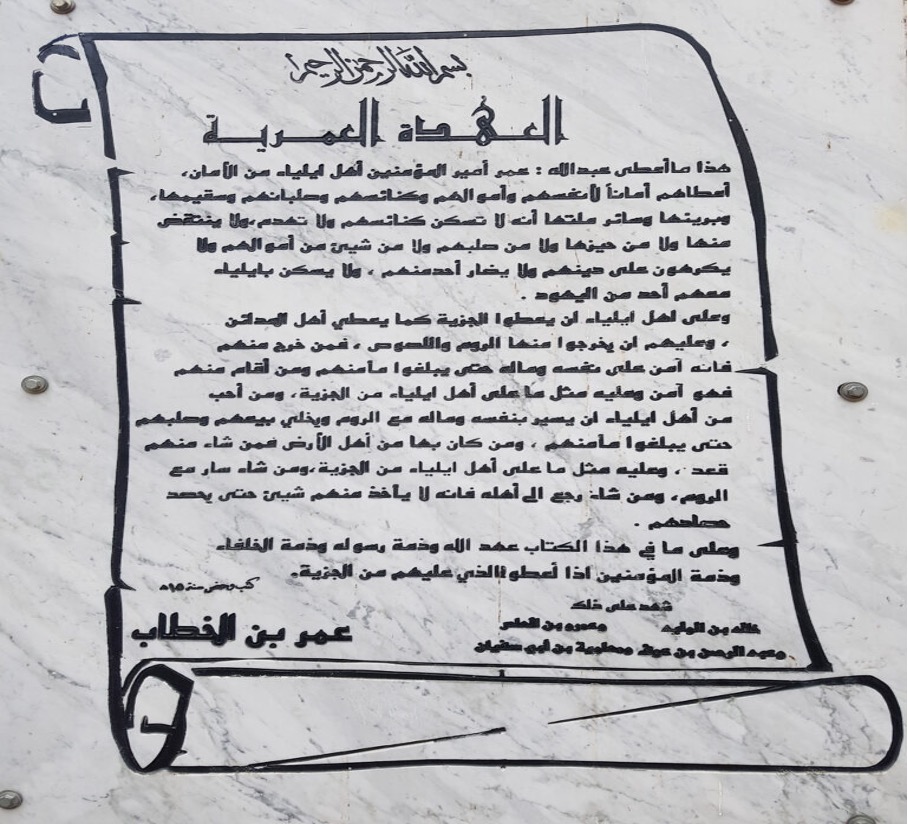 بسم الله الرحمن الرحيم
العهدة العمرية
هذا ما أعطى عبدالله : عمر أمير المؤمنين أهل ايلياء من الأمان،
أعطاهم أماناً لأنفسهم وأموالهم وكنائسهم وصلبانهم وسقيمها،
وبريئها وسائر ملتها أنه لا تسكن كنائسهم ولا تهدم،ولا ينتقض
منها ولا من حيزها ولا من صلبهم ولا من شيئ من أموالهم ولا
يكرهون على دينهم ولا يضار أحدمنهم ، ولا يسكن بايلياء
معهم أحد من اليهود .
وعلى اهل ايلياء ان يعطوا الجزية كما يعطي أهل المدائن
، وعليهم ان يخرجوا منها الروم واللصوص ، فمن خرج منهم
فانه آمن على نفسه وماله حتى يبلغوا مأمنهم ومن أقام منهم
فهو آمن وعليه مثل ما على أهل ايلياء من الجزية، ومن أحب
من أهل ايلياء ان يسير بنفسه وماله مع الروم ويخلي بيعهم وصلبهم
حتى يبلغوا مأمنهم ، ومن كان بها من أهل الأرض فمن شاء منهم
قعد ، وعليه مثل ما على أهل ايلياء من الجزية،ومن شاء سار مع
الروم، ومن شاء رجع الى أهله فانه لا يأخذ منهم شيئ حتى يحصد
حصادهم .
وعلى ما في هذا الكتاب عهد الله وذمة رسوله وذمة الخلفاء
وذمة المؤمنين اذا أعطوا الذي عليهم من الجزية.
كتب وحضر سنة ١٥هـ
شهد على ذلك
خالد بن الوليد وعمرو بن العاص
وعبد الرحمن بن عوف ومعاوية بن أبي سفيان
عمر بن الخطاب